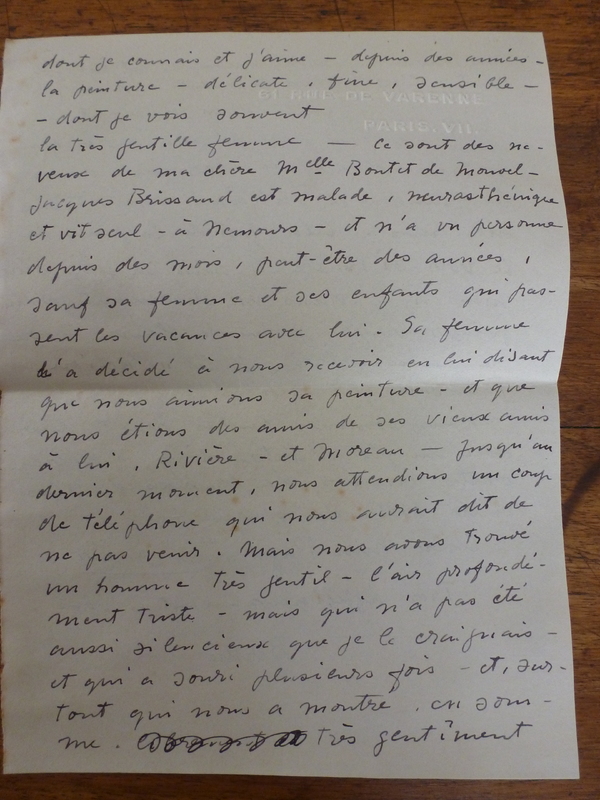 dont je connais et j'aime - depuis des années -
la peinture - délicate, fine, sensible -
RUE DE VARENNE
- dont je vois souvent
PARIS. VII
la très gentille femme — Ce sont des ne-
veux de ma chère Melle Bontet de Monvel -
Jacques Brissaud est malade, neurasthénique
et vit seul - à Nemours - et n'a vu personne
depuis des mois, peut-être des années,
sauf sa femme et ses enfants qui pas-
sent les vacances avec lui. Sa femme
l'a décidé à nous recevoir en lui disant
que nous aimions sa peinture - et que
nous étions des amis de ses vieux amis
à lui, Rivière - et Moreau — Jusqu'au
dernier moment, nous attendions un coup
de téléphone qui nous aurait dit de
ne pas venir. Mais nous avons trouvé
un homme très gentil - l'air profondé-
ment triste - mais qui n'a pas été
aussi silencieux que je le craignais -
et qui a souri plusieurs fois - et, sur-
tout qui nous a montré, en som-
me. très gentîment